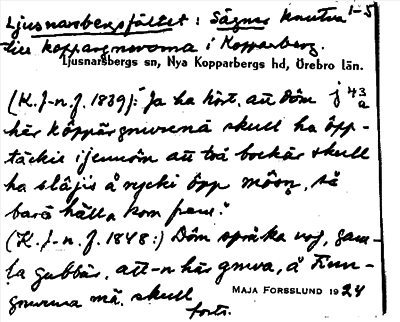 Ljusnarsbergsfältet: Sägner knutna 1-5
till koppargruvorna i Kopparberg.
Ljusnarsbergs sn, Nya Kopparbergs hd, Örebro län.
(K.J-n. f. 1839): "Ja ha hört, att döm
här köppärgruvenä skull ha öpp-
täckis ijennôm att två bockär skull
ha slâjis å rycki ôpp môsn, så
barä hälln kom fram."
(K.J-n. f. 1848:) Döm språka voj, gam-
la gubbär, att-n här gruva, å Finn-
gruvena mä. skull
forts.
MAJA FORSSLUND 1924